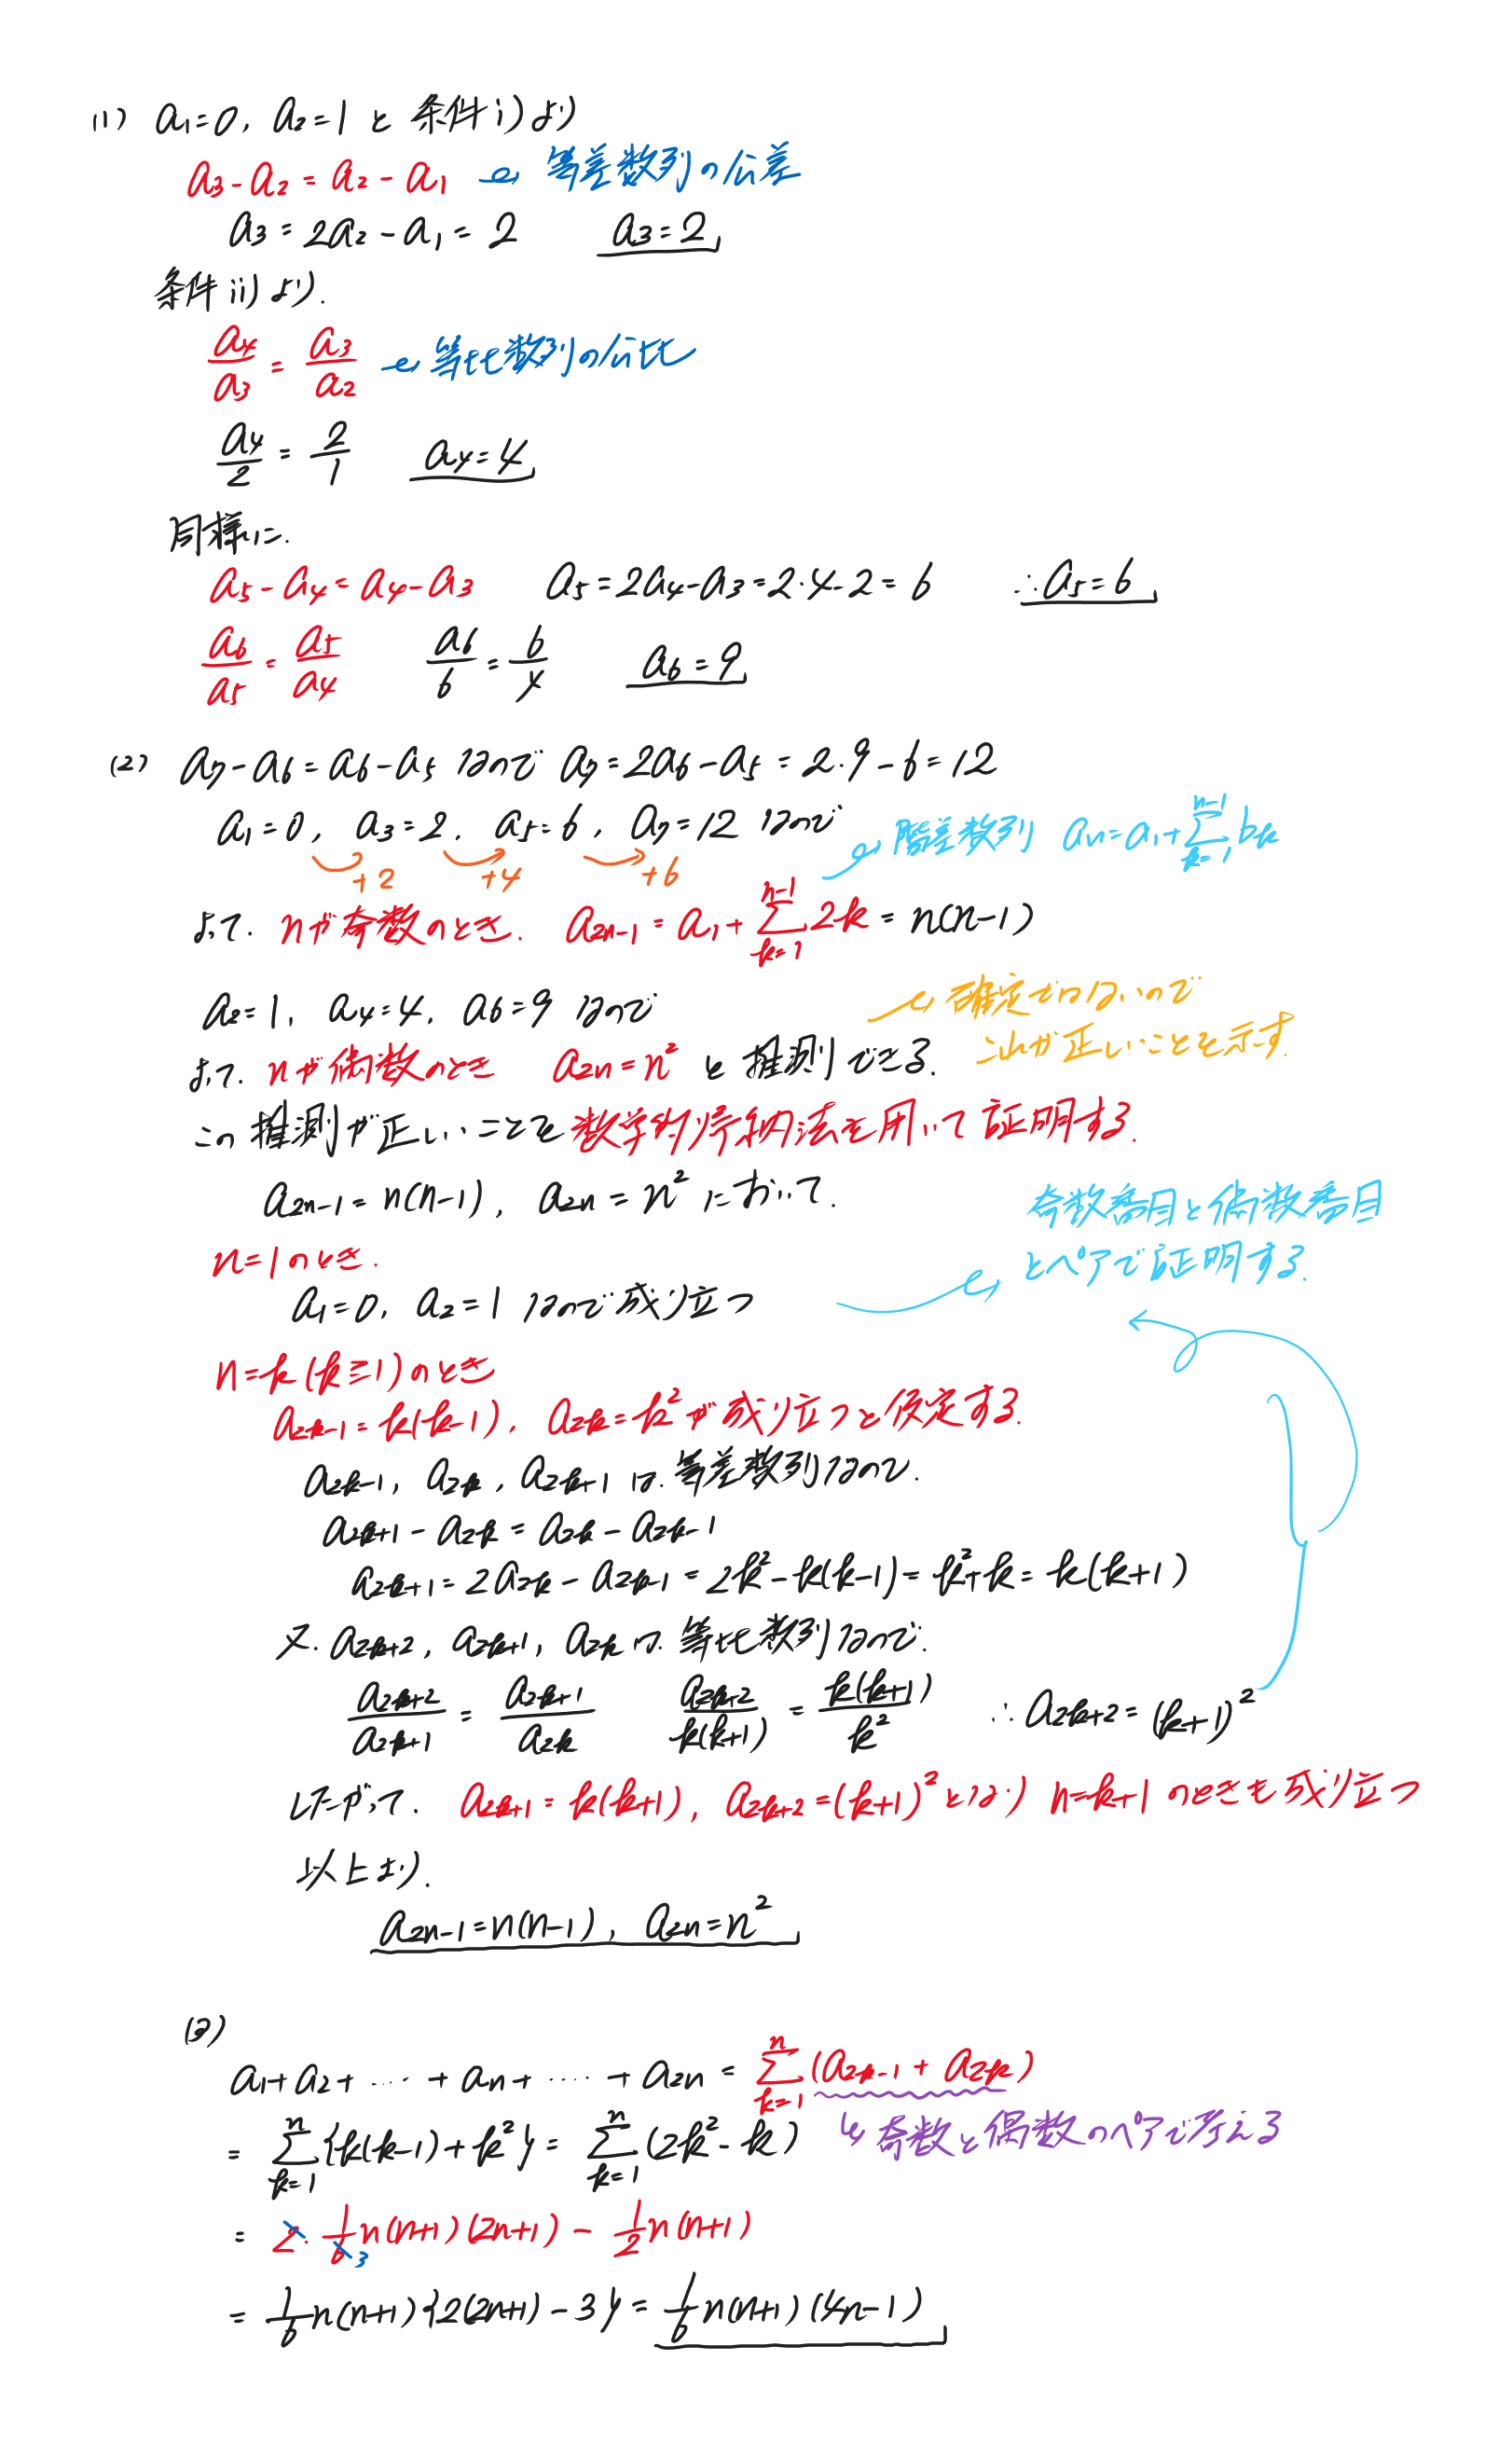 (1) a₁=0, a₂=1 と 条件 i) より
a₃-a₂ = a₂-a₁ 等差数列の公差
a₃ = 2a₂-a₁ = 2 a₃=2
条件 ii) より.
a₄/a₃ = a₃/a₂ 等比数列の公比
a₄/2 = 2/1 a₄=4
同様に.
a₅-a₄=a₄-a₃ a₅=2a₄-a₃=2·4-2=6 ∴a₅=6
a₆/a₅ = a₅/a₄ a₆/6 = 6/4 a₆=9
(2) a₇-a₆=a₆-a₅ なので a₇=2a₆-a₅=2·9-6=12
a₁=0, a₃=2, a₅=6, a₇=12 なので
+2 +4 +6
階差数列 aₙ=a₁+Σ_{k=1}^{n-1} bₖ
よって. nが奇数のとき. a₂ₙ₋₁ = a₁+Σ_{k=1}^{n-1} 2k = n(n-1)
a₂=1, a₄=4, a₆=9 なので
確定ではないので
これが正しいことを示す.
よって. nが偶数のとき a₂ₙ=n² と推測できる.
この推測が正しいことを数学的帰納法を用いて証明する.
a₂ₙ₋₁=n(n-1), a₂ₙ=n² において.
奇数番目と偶数番目
とペアで証明する.
n=1のとき.
a₁=0, a₂=1 なので成り立つ
n=k(k≧1)のとき
a₂ₖ₋₁=k(k-1), a₂ₖ=k² が成り立つと仮定する.
a₂ₖ₋₁, a₂ₖ, a₂ₖ₊₁ は. 等差数列なので.
a₂ₖ₊₁-a₂ₖ=a₂ₖ-a₂ₖ₋₁
a₂ₖ₊₁=2a₂ₖ-a₂ₖ₋₁=2k²-k(k-1)=k²+k=k(k+1)
又. a₂ₖ₊₂, a₂ₖ₊₁, a₂ₖ は. 等比数列なので.
a₂ₖ₊₂/a₂ₖ₊₁ = a₂ₖ₊₁/a₂ₖ a₂ₖ₊₂/k(k+1) = k(k+1)/k² ∴a₂ₖ₊₂=(k+1)²
したがって. a₂ₖ₊₁=k(k+1), a₂ₖ₊₂=(k+1)² となり n=k+1 のときも成り立つ
以上より.
a₂ₙ₋₁=n(n-1), a₂ₙ=n²
(3)
a₁+a₂+……+aₙ+……+a₂ₙ = Σ_{k=1}^{n} (a₂ₖ₋₁+a₂ₖ)
= Σ_{k=1}^{n} {k(k-1)+k²} = Σ_{k=1}^{n} (2k²-k) 奇数と偶数のペアで考える
= 2·1/6 n(n+1)(2n+1) - 1/2 n(n+1)
3
= 1/6 n(n+1){2(2n+1)-3} = 1/6 n(n+1)(4n-1)